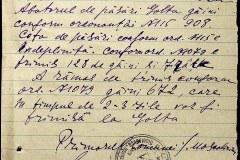 Abatorul de păsări Golta găini
conform ordonanței No 115 908
Cota de păsări conform ord. No 115 e
îndeplinită. Conform ord. No 1079 e
trimis 128 de găini și 7
A rămas de trimis conform
ord. No 1079 găini 672, care
în timpul de 2-3 zile vor fi
trimise la Golta
Primarul comunei